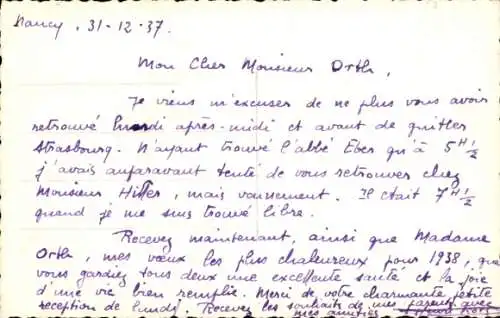 Nancy, 31-12-37.
Mon Cher Monsieur Orth,
Je viens m'excuser de ne plus vous avoir
retrouvé lundi après-midi et avant de quitter
Strasbourg. N'ayant trouvé l'abbé Eber qu'à 5 H ½
j'avais auparavant tenté de vous retrouver chez
Monsieur Hitter, mais vainement. Il était 7 H ½
quand je me suis trouvé libre.
Recevez maintenant, ainsi que Madame
Orth, mes vœux les plus chaleureux pour 1938, que
vous gardiez tous deux une excellente santé et la joie
d'une vie bien remplie. Merci de votre charmante petite
réception de lundi. Recevez les souhaits de mes parents avec
mes amitiés